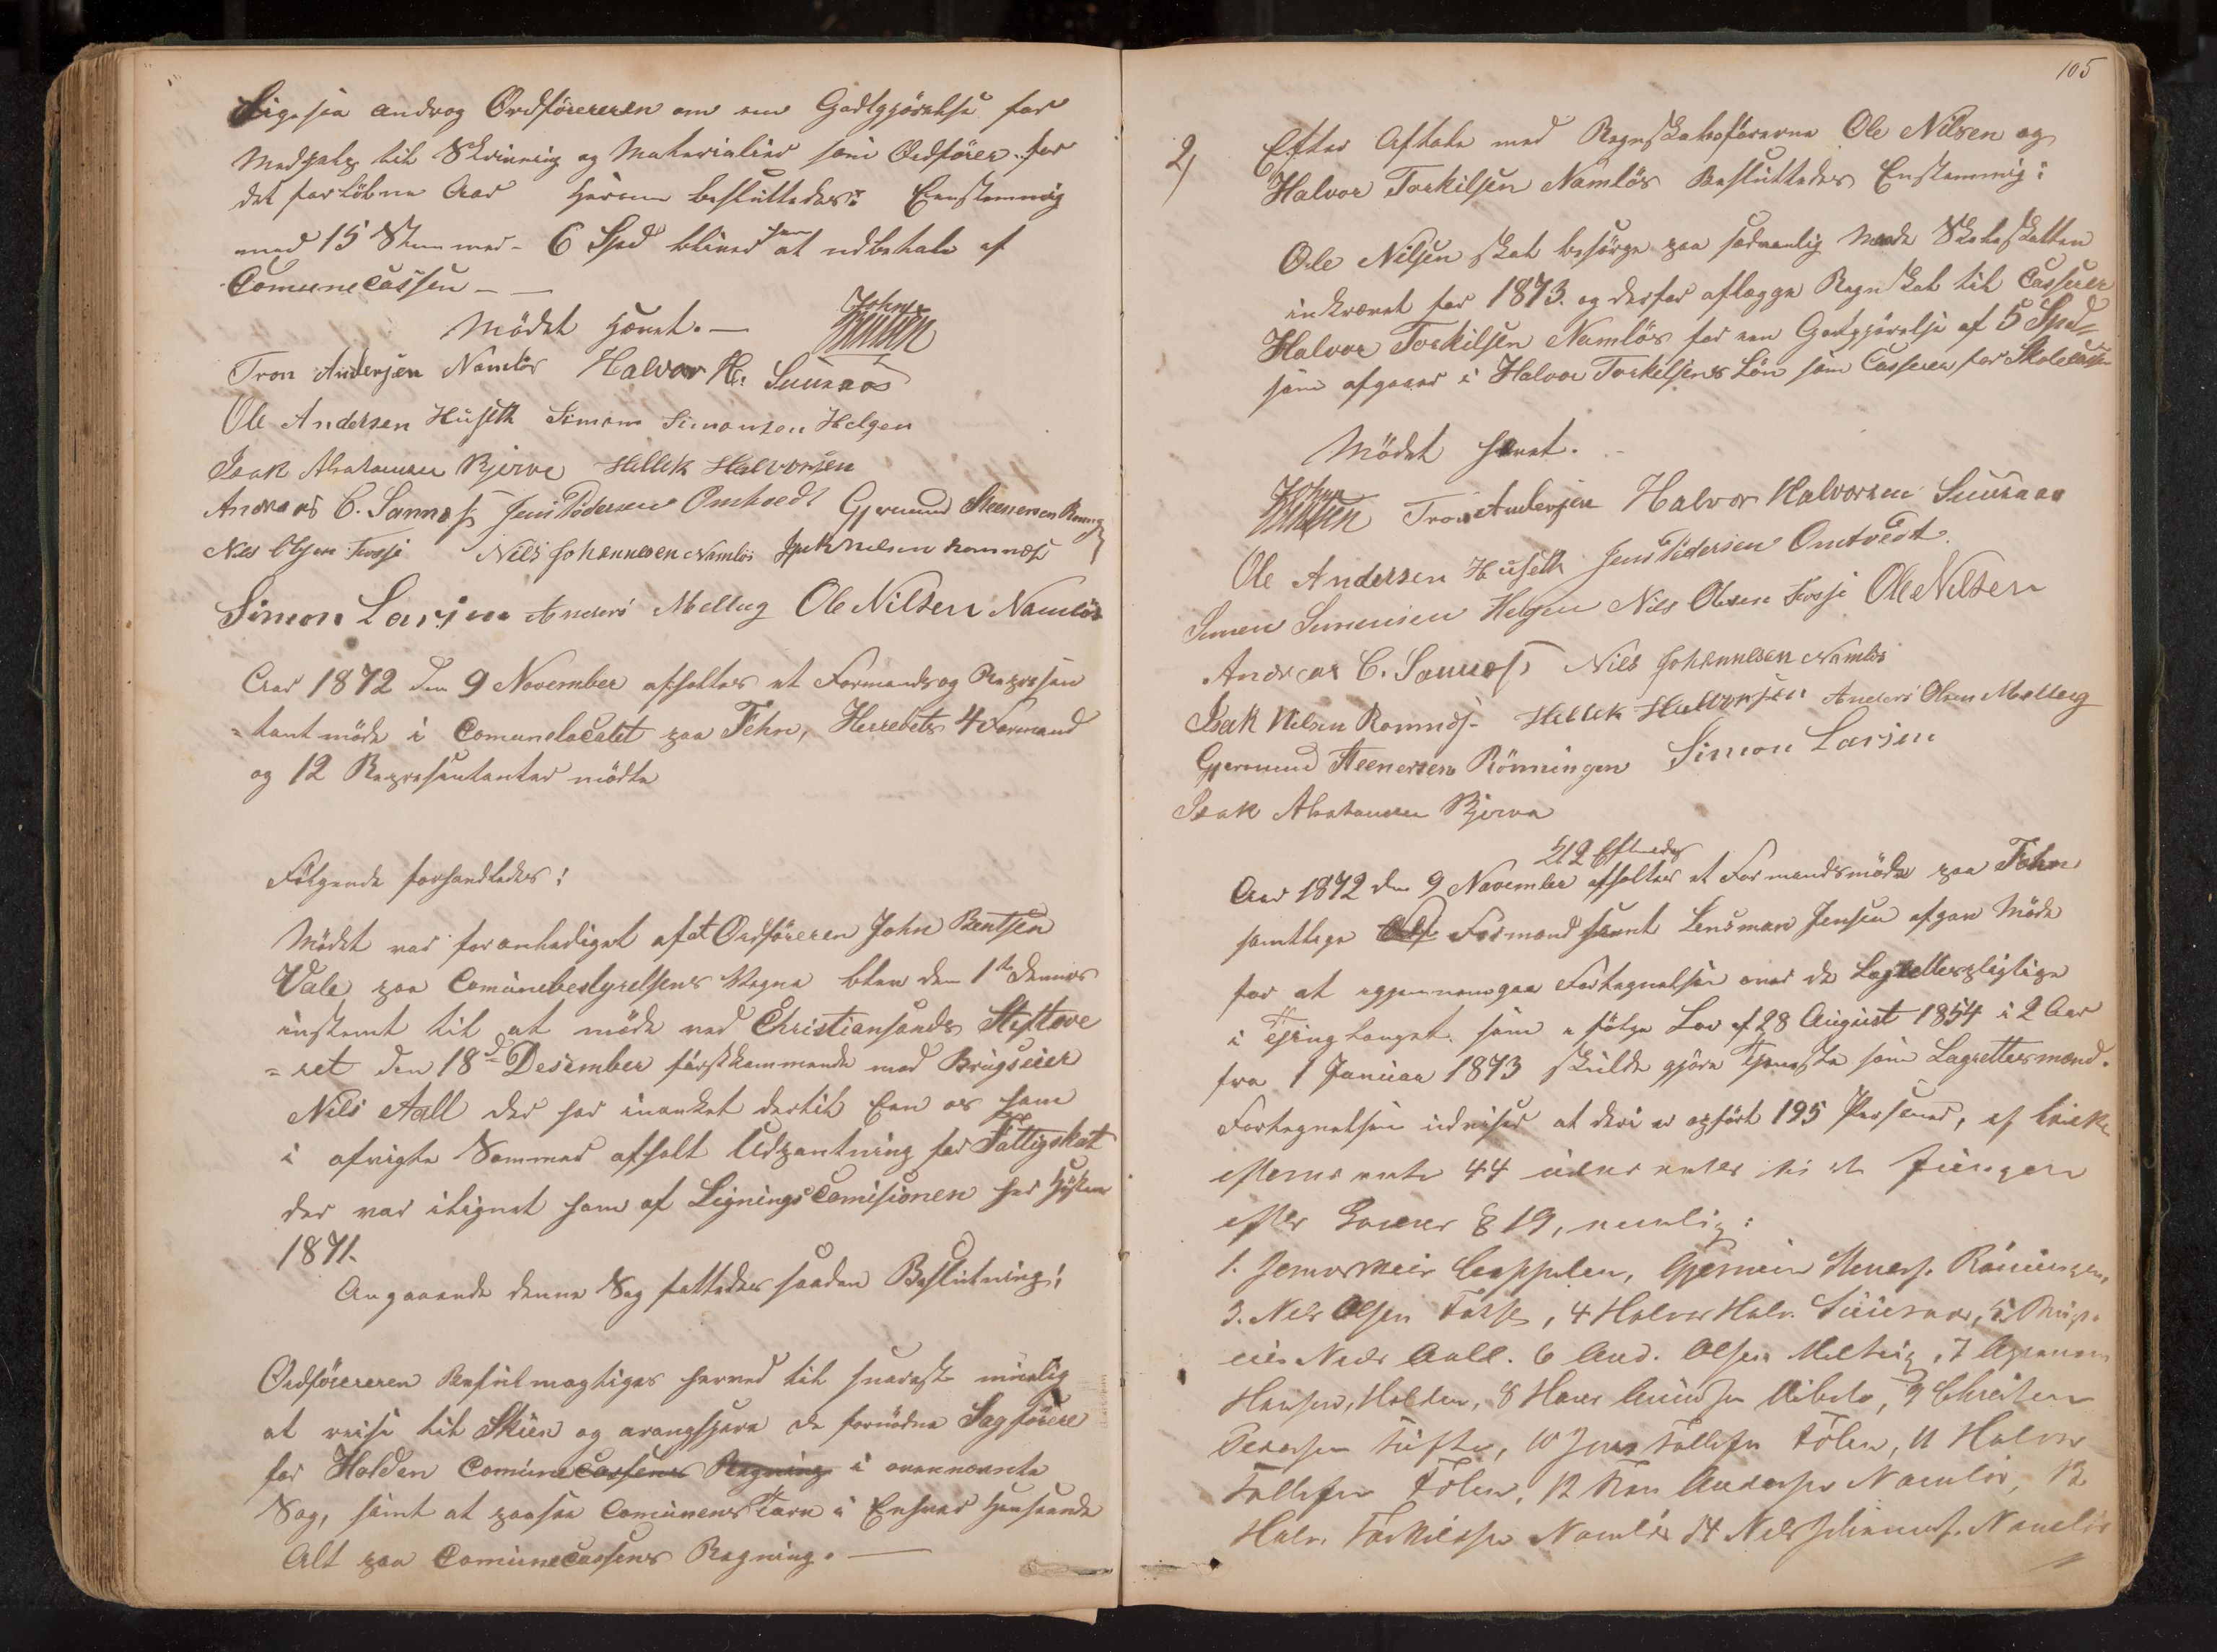 Ligesaa androg Ordföreren om en Godtgjörelse for
Medhalp til Skrivning og Materialier som Ordförer for
det forlöbne Aar Herom besluttedes: Eenstemmig
med 15 Stemmer - 6 Spd bliver ham at udbetale af
Comunecassen -
Mödet hævet. - John
Bentsen
Tron Andersen Namlös Halvor H: Suusaas
Ole Andersen Huseth Simon Simonsen Helgen
Isak Abrahamsen Bjerva Hellek Halvorsen
Andreas C. Sannæs Jens Pedersen Omtvedt Gjermund Steenersen Rönning
Nils Olsen Fosse Nils Johannesen Namlös Isak Nilsen Romnæs
Simon Larsen Anders Melteig Ole Nilsen Namlös
Aar 1872 den 9 November afholtes et Formands og Repræsen
=tantmöde i Comunelocalet paa Fehn, Herredets 4 Formænd
og 12 Repræsentanter mödte
Fölgende forhandledes:
Mödet var foranlediget af at Ordföreren John Bentsen
Vale paa Comunebestyrelsens Vegne blev den 1te dennes
instevnt til at möde ved Christiansands Stiftove
=ret den 18de Desember förstkommende med Brugseier
Nils Aall der har indanket dertil Een os som
i afvigte Sommer afholt Udpantning for Fattigskat
der var ilignet ham af LigningsComisionen for Hösten
1871.
Angaaende denne Sag fattedes saadan Beslutning:
Ordföreren Befuldmægtiges herved til snarest muelig
at reise til Skien og arangshere de fornödne Sagförere
for Holden Comunecassens Regning i ovennævnte
Sag, samt at paasee Comunens Tarv i Enhver Henseende
Alt paa Comunecassens Regning. -
105
2) Efter Aftale med Regnskabsförerne Ole Nilsen og
Halvor Torkilsen Namlös Besluttedes Enstemmig:
Ole Nilsen skal besörge paa sædvanlig Maade Skoleskatten
indkrævet for 1873. og derfor aflægge Regnskab til Casserer
Halvor Torkilsen Namlös for en Godtgjörelse af 5 Spd
som afgaaer i Halvor Torkilsens Lön som Casserer for Skolecassen
Mödet hævet.
John
Bentsen Tron Andersen Halvor Halvorsen Suusaas
Ole Andersen Huseth Jens Pedersen Omtvedt.
Simon Simonsen Helgen Nils Olsen Fosse Ole Nilsen
Andreas C. Sannæs Nils Johannesen Namlös
Isak Nilsen Romnæs - Hellek Halvorsen Anders Olsen Melteig
Gjermund Steenersen Rönningen Simon Larsen
Isak Abrahamsen Bjerva
212 Eftermidag
Aar 1872 den 9 November afholtes et Formandsmöde paa Fehn
samtlige Formænd samt Lensmann Jensen afgav Möde
for at igjennemgaa Fortegnelsen over de Lagrettespligtige
i Thinglauget som ifölge Lov af 28 August 1854 i 2 Aar
fra 1 Januar 1873 skulde gjöre Tjeneste som Lagrettesmænd.
Fortegnelsen udviser at deri er opfört 195 Personer, af hvilke
44 udnævntes til at fungere
efter Lovens § 19, nemlig:
1. Jernværkseier Cappelen, Gjermun Steners. Röningen,
3. Nils Olsen Fosse, 4 Halvor Halv. Suusaas, 5 Brugs-
eier Niels Aall. 6 And. Olsen Melteig, 7
Hansen, Holden, 8 Hans 9 Christen
Pedersen Tufte, 10 Jens Tollefsen Fölen, 11 Halvor
Tollefsen Fölen, 12 Tron Andersen Namlös, 13
Halv. Torkilsen Namlös 14 Nils Johannes. Namlös